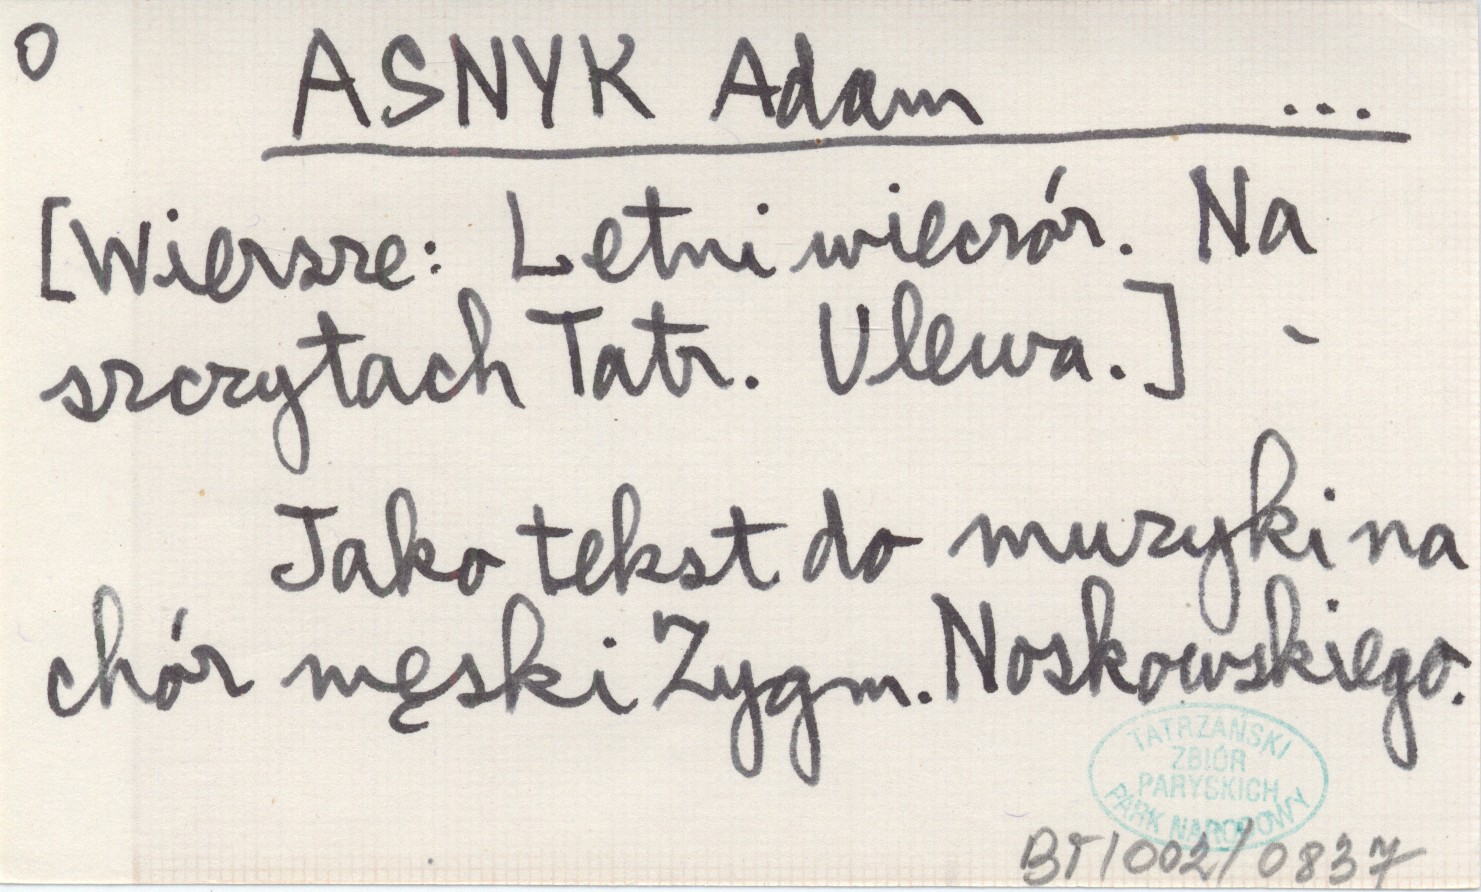 O
ASNYK Adam ...
[Wiersze: Letni wieczór. Na
szczytach Tatr. Ulewa.] -
Jako tekst do muzyki na
chór męski Zygm. Noskowskiego.
TATRZAŃSKI
ZBIÓR
PARYSKICH
PARK NARODOWY
BT/002/0837